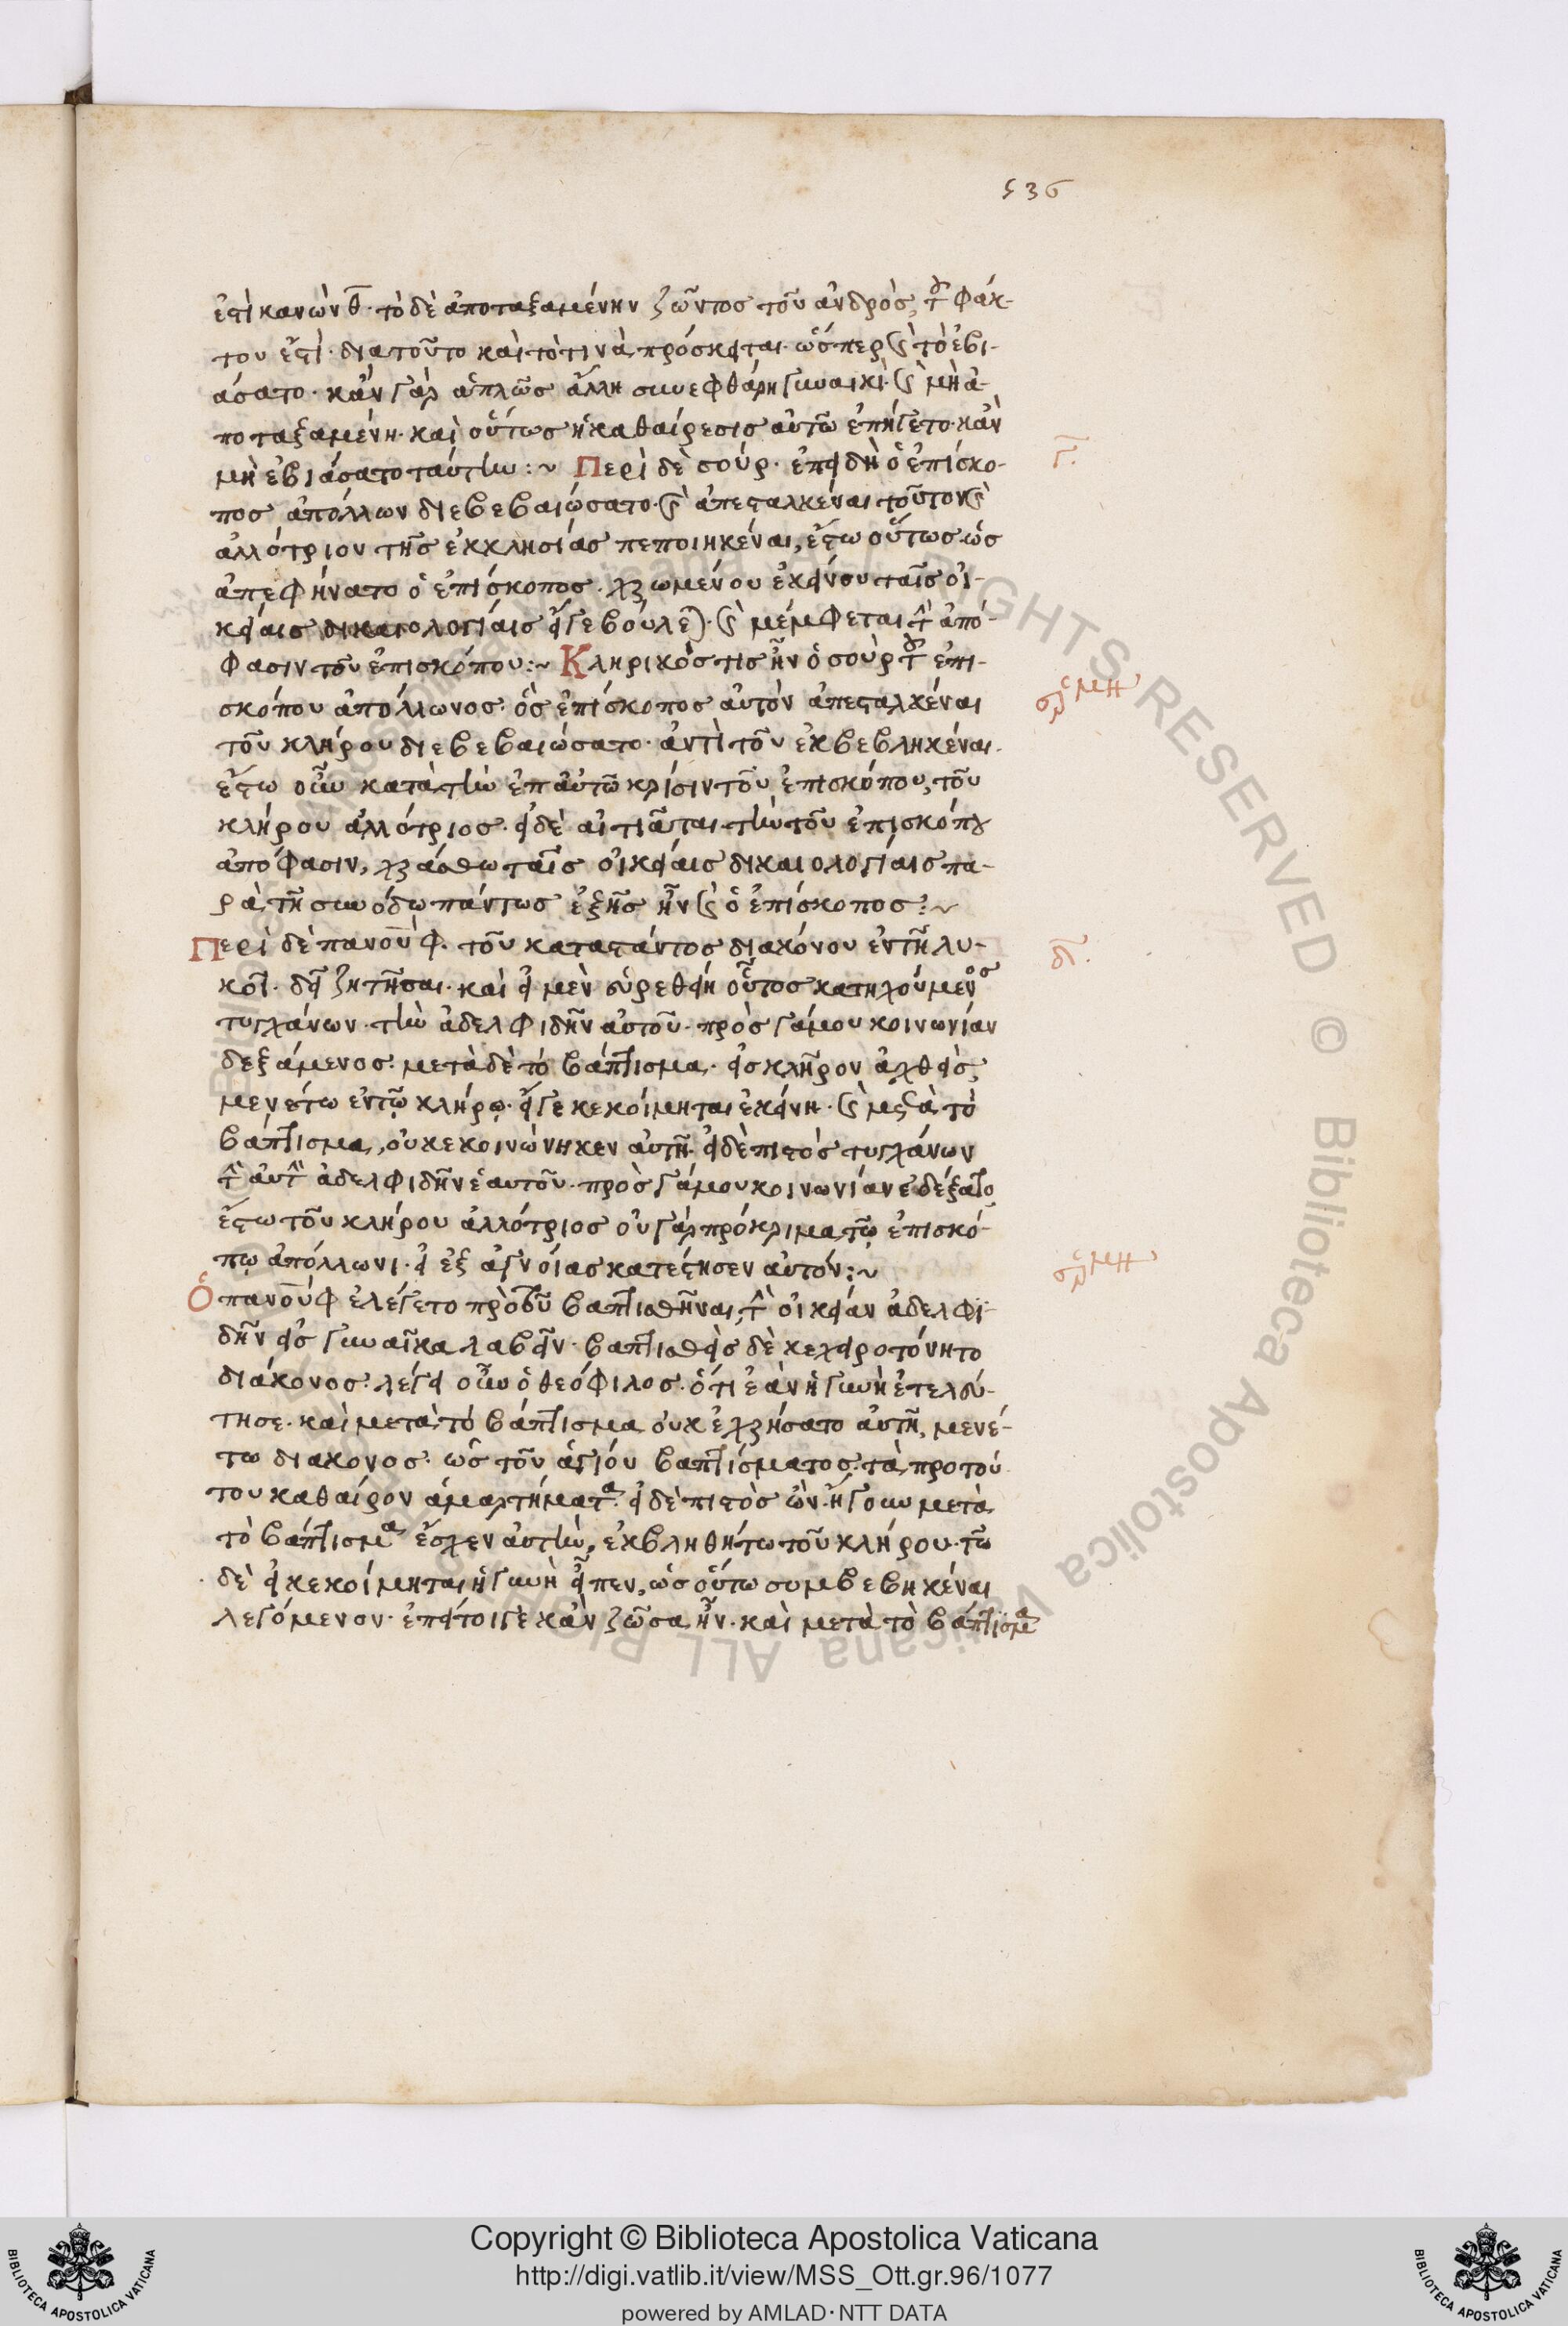 536
ἐστὶ κανὼν θ. τὸ δὲ ἀποταξαμένην ζῶντος τοῦ ἀνδρὸς, τοῦ φάκ-
του ἐστί. διατοῦτο καὶ τὸ τινὰ πρόσκειται. ὥσπερ καὶ τὸ ἐβι-
άσατο. κἂν γὰρ ἁπλῶς ἄλλη συνεφθάρη γυναικὶ. καὶ μὴ ἀ-
ποταξαμένη. καὶ οὕτως ἡ καθαίρεσις αὐτῶ ἐπήγετο. κἂν
μὴ ἐβιάσατο ταύτην:~ Περὶ δὲ σούρ. ἐπειδὴ ὁ ἐπίσκο-
γ.
πος ἀπόλλων διεβεβαιώσατο. καὶ ἀπεσταλκέναι τοῦτον καὶ
ἀλλότριον τῆς ἐκκλησίας πεποιηκέναι, ἔστω οὕτως ὡς
ἀπεφήνατο ὁ ἐπίσκοπος. χρωμένου ἐκείνου ταῖς οἰ-
κείαις δικαιολογίαις εἴγε βούλεται. καὶ μέμφεται τὴν ἀπό-
φασιν τοῦ ἐπισκόπου:~ Κληρικός τις ἦν ὁ σοὺρ τοῦ ἐπι-
σκόπου ἀπόλλωνος. ὃς ἐπίσκοπος αὐτὸν ἀπεσταλκέναι
τοῦ κλήρου διεβεβαιώσατο. ἀντὶ τοῦ ἐκβεβληκέναι.
ἔστω οὖν κατὰ τὴν ἐπ αὐτῶ κρίσιν τοῦ ἐπισκόπου, τοῦ
κλήρου ἀλλότριος. εἰ δὲ αἰτιᾶται τὴν τοῦ ἐπισκόπου
ἀπόφασιν, χράσθω ταῖς οἰκείαις δικαιολογίαις πα-
ρὰ τῆ συνόδω πάντως ἐξ ἧς ἦν καὶ ὁ ἐπίσκοπος:~
Περὶ δὲ πανοὺφ. τοῦ καταστάντος διακόνου ἐν τῆ λυ-
δ.
κοῖ. δεῖ ζητῆσαι. καὶ εἰ μὲν εὑρεθείη οὗτος κατηχούμενος
τυγχάνων. τὴν ἀδελφιδῆν αὐτοῦ. πρὸς γάμου κοινωνίαν
δεξάμενος. μετὰ δὲ τὸ βάπτισμα. εἰς κλῆρον ἀχθεὶς,
μενέτω ἐν τῷ κλήρῳ. εἴγε κεκοίμηται ἐκείνη. καὶ μετὰ τὸ
βάπτισμα, οὐ κεκοινώνηκεν αὐτῆ. εἰ δὲ πιστὸς τυγχάνων
τὴν αὐτὴν ἀδελφιδῆν ἑαυτοῦ. πρὸς γάμου κοινωνίαν ἐδέξατο
ἔστω τοῦ κλήρου ἀλλότριος οὐ γὰρ πρόκριμα τῷ ἐπισκό-
πῳ ἀπόλλωνι. εἰ ἐξ ἀγνοίας κατέστησεν αὐτόν:~
Ὁ πανοὺφ ἐλέγετο πρὸ τοῦ βαπτισθῆναι, τὴν οἰκείαν ἀδελφι-
δῆν εἰς γυναῖκα λαβεῖν. βαπτισθεὶς δὲ κεχειροτόνητο
διάκονος. λέγει οὖν ὁ θεόφιλος. ὅτι ἐὰν ἡ γυνὴ ἐτελεύ-
τησε. καὶ μετὰ τὸ βάπτισμα οὐκ ἐχρήσατο αὐτῆ, μενέ-
τω διάκονος. ὡς τοῦ ἁγίου βαπτίσματος. τὰ προ τού
του καθαῖρον ἁμαρτήματα. εἰ δὲ πιστὸς ὢν. ἤγουν μετὰ
τὸ βάπτισμα ἔσχεν αὐτὴν, ἐκβληθήτω τοῦ κλήρου. τῶ
δὲ εἰ κεκοίμηται ἡ γυνὴ εἶπεν, ὡς οὕτω συμβεβηκέναι
λεγόμενον. ἐπείτοιγε κἂν ζῶσα ἦν. καὶ μετὰ τὸ βάπτισμα
Copyright © Biblioteca Apostolica Vaticana
http://digi.vatlib.it/view/MSS_Ott.gr.96/1077
powered by AMLAD·NTT DATA
BIBLIOTECA APOSTOLICA VATICANA
BIBLIOTECA APOSTOLICA VATICANA